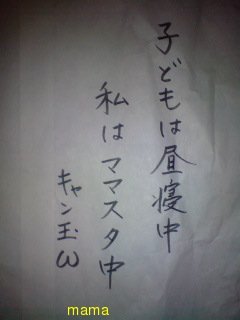 子どもは昼寝中
私はママスタ中
キャン玉ω
mama